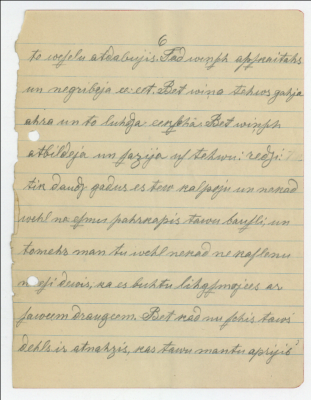 6
to weselu atdabujis. Tad winsch apskaitahs
un negribeja ee eet. Bet wina tehws gahja
ahra un to luhdza eekschâ Bet winsch
atbildeja un sazija us tehwu: redzi
tik daudz gadus es tew kalpoju un nekad
wehl ne esmu pahrkapis tawu bausli; un
tomehr man tu wehl nekad ne kaslenu
ne esi dewis, ka es buhtu lihgsmojees ar
saweem draugeem. Bet kad nu schis taws
dehls ir atnahzis, kas tawu mantu aprijis